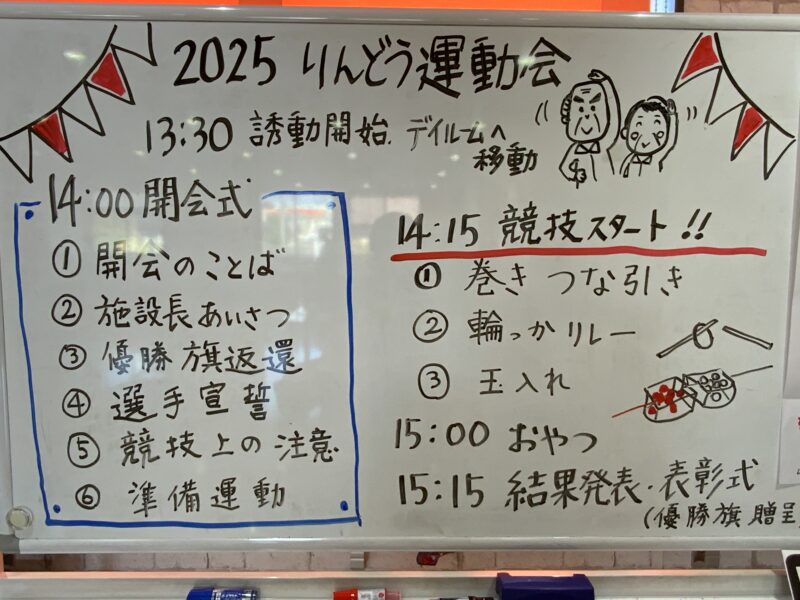 2025 りんどう運動会
13:30 誘動開始. デイルームへ
移動
14:00 開会式
① 開会のことば
② 施設長あいさつ
③ 優勝旗返還
④ 選手宣誓
⑤ 競技上の注意
⑥ 準備運動
14:15 競技スタート!!
① 巻き つな引き
② 輪っかリレー
③ 玉入れ
15:00 おやつ
15:15 結果発表・表彰式
(優勝旗贈呈